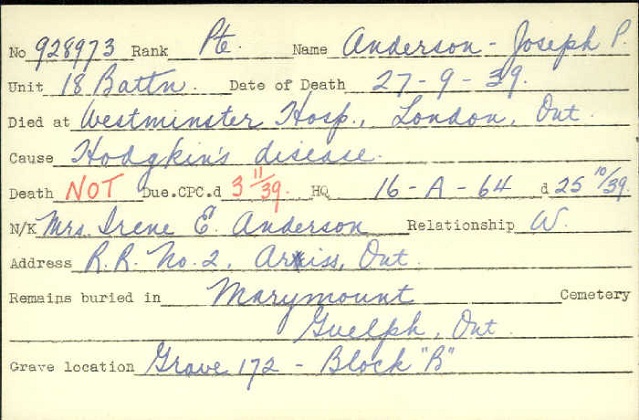 No 928973 Rank Pte. Name Anderson - Joseph P.
Unit 18 Battn. Date of Death 27-9-39.
Died at Westminster Hosp., London, Ont.
Cause Hodgkin's disease.
Death NOT Due.CPC.d 3 11/39. HQ 16-A-64 d 25 10/39.
N/K Mrs. Irene E. Anderson Relationship W.
Address R.R. No. 2, Ariss, Ont.
Remains buried in Marymount Cemetery
Guelph, Ont.
Grave location Grave 172 - Block "B"